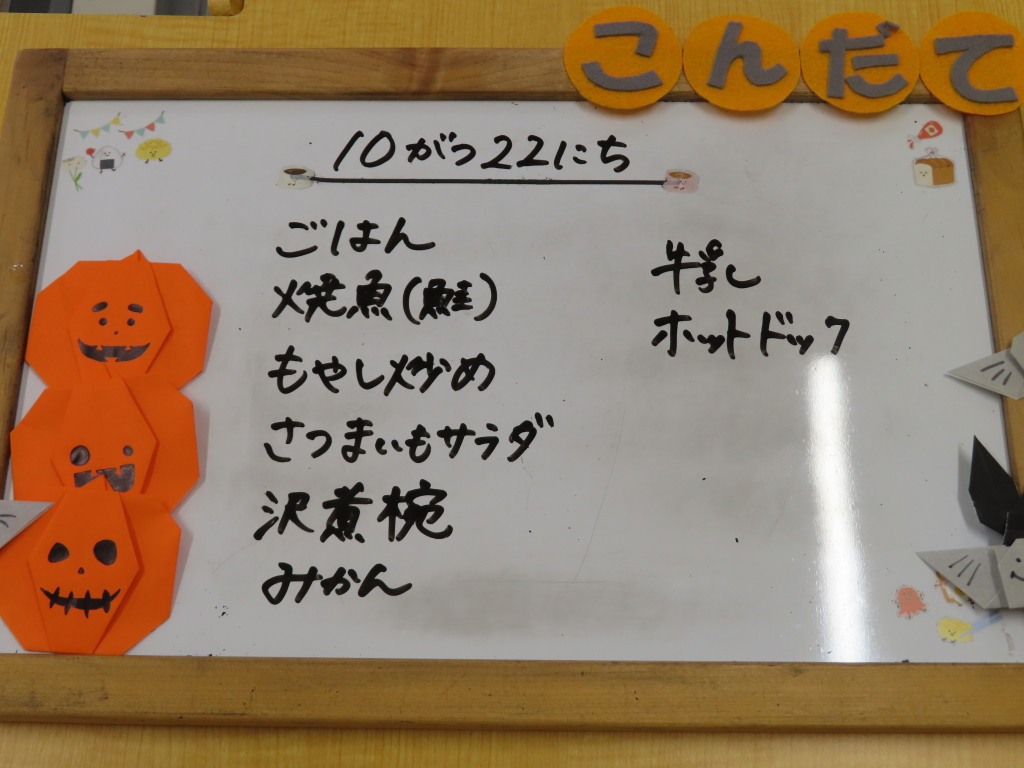 こんだて
10がつ22にち
ごはん
焼魚(鮭)
もやし炒め
さつまいもサラダ
沢煮椀
みかん
牛乳
ホットドック